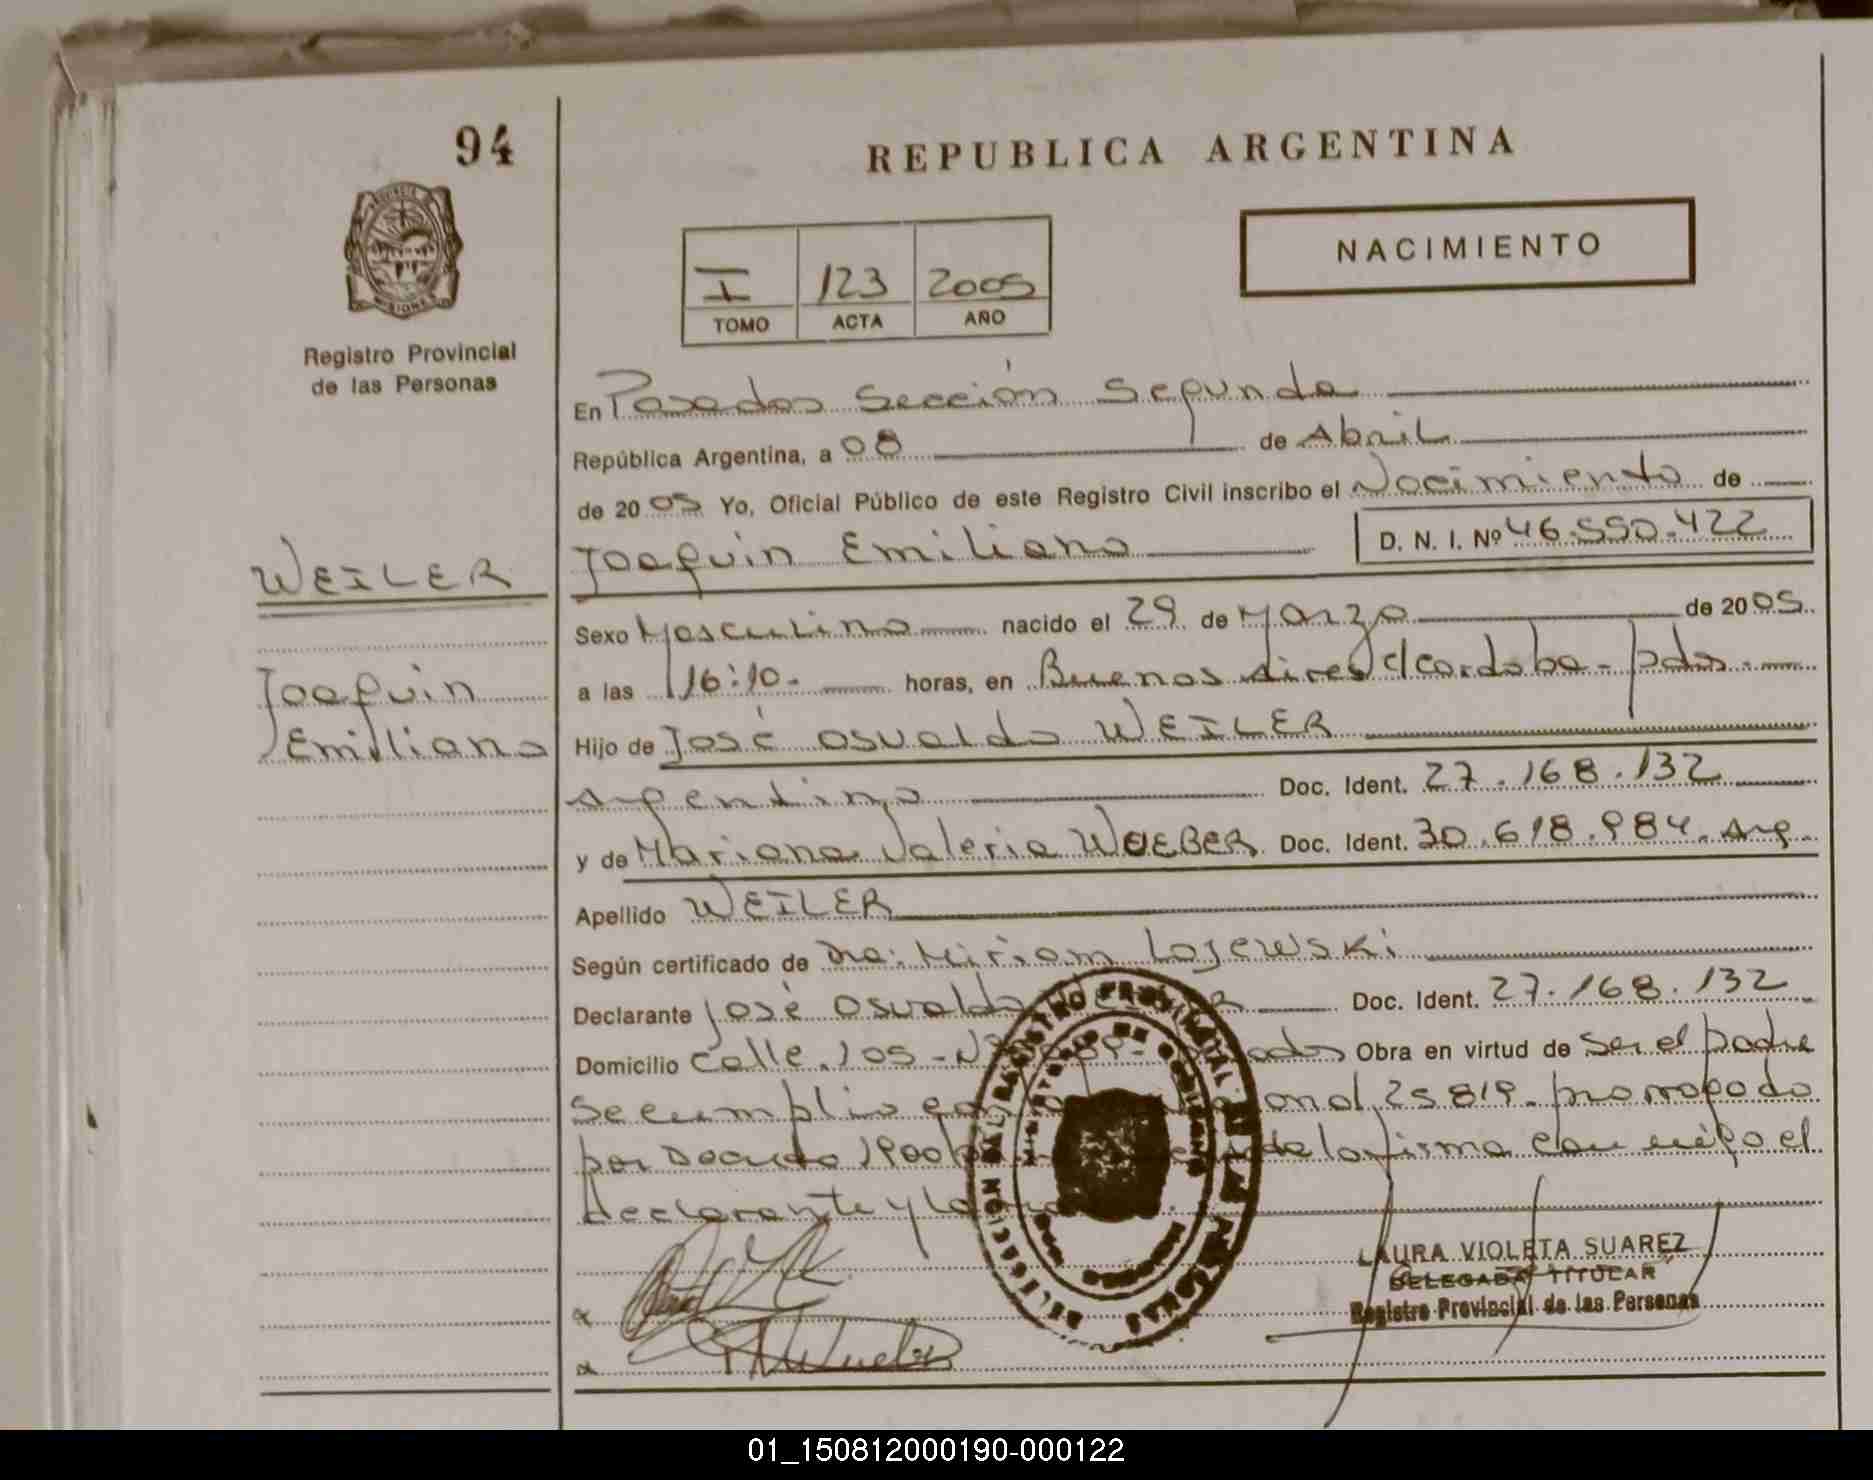 94
REPUBLICA ARGENTINA
MISIONES
Registro Provincial
de las Personas
I 123 2005
TOMO ACTA AÑO
NACIMIENTO
En Posadas Sección Segunda
República Argentina, a 08 de Abril
de 2005 Yo, Oficial Público de este Registro Civil inscribo el Nacimiento de
WEILER
Joaquin Emiliano
D. N. I. Nº 46.550.422
Sexo Masculino nacido el 29 de Marzo de 2005
Joaquin
a las 16:10- horas, en Buenos Aires c/Cordoba - pdas -
Emiliano
Hijo de José Osvaldo WEILER
argentino Doc. Ident. 27.168.132
y de Mariana Valeria WUEBER Doc. Ident. 30.618.984. Arg.
Apellido WEILER
Según certificado de Dra: Miriam Lojewski
Declarante José Osvaldo Doc. Ident. 27.168.132
Domicilio Calle 105 - Nº Obra en virtud de Ser el padre
Se cumplio con 25819. prorrogado
por Decreto 1900 de la firma conmigo el
declarante y la
LAURA VIOLETA SUAREZ
DELEGADA TITULAR
Registro Provincial de las Personas
DELEGACION DEL REGISTRO PROVINCIAL DE LAS PERSONAS
MINISTERIO DE GOBIERNO
01_150812000190-000122